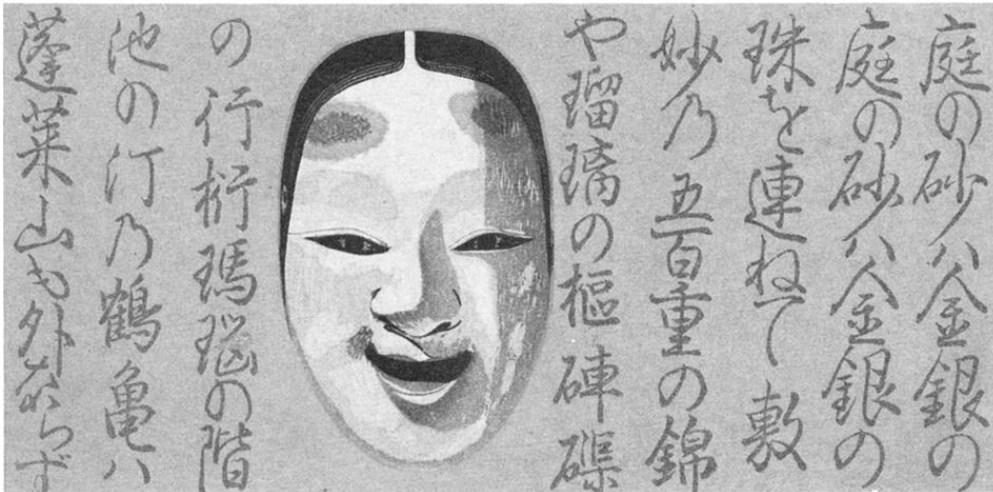 庭の砂ハ金銀の
庭の砂ハ金銀の
珠を連ねて敷
妙乃五百重の錦
や瑠璃の樞硨磲
の行桁瑪瑙の階
池の汀乃鶴亀ハ
蓬莱山も外ならず